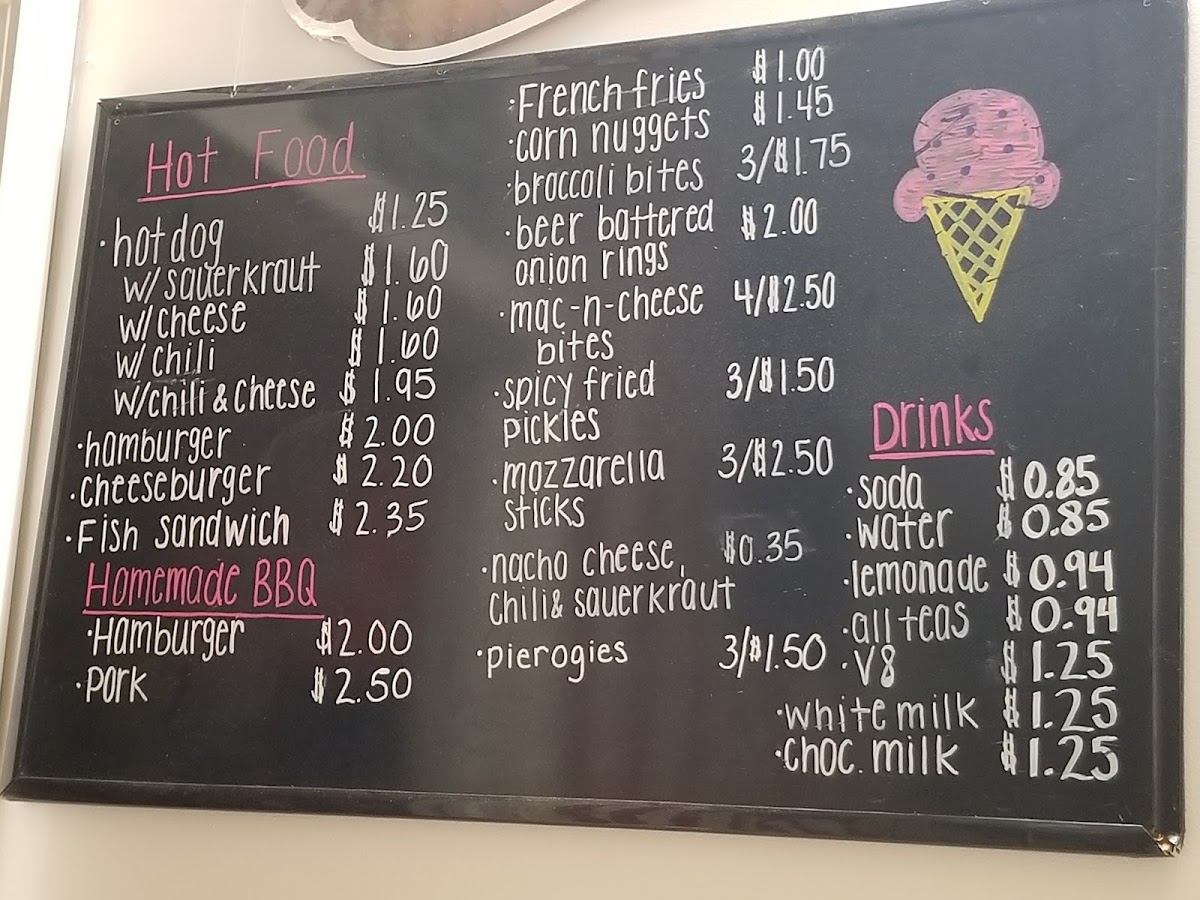 Hot Food
• hot dog $1.25
w/ sauerkraut $1.60
w/ cheese $1.60
w/ chili $1.60
w/ chili & cheese $1.95
• hamburger $2.00
• cheeseburger $2.20
• Fish sandwich $2.35
Homemade BBQ
• Hamburger $2.00
• Pork $2.50
• French fries $1.00
• corn nuggets $1.45
• broccoli bites 3/$1.75
• beer battered $2.00
onion rings
• mac-n-cheese 4/$2.50
bites
• spicy fried 3/$1.50
pickles
• mozzarella 3/$2.50
sticks
• nacho cheese, $0.35
chili & sauerkraut
• pierogies 3/$1.50
Drinks
• soda $0.85
• water $0.85
• lemonade $0.94
• all teas $0.94
• V8 $1.25
• white milk $1.25
• choc. milk $1.25